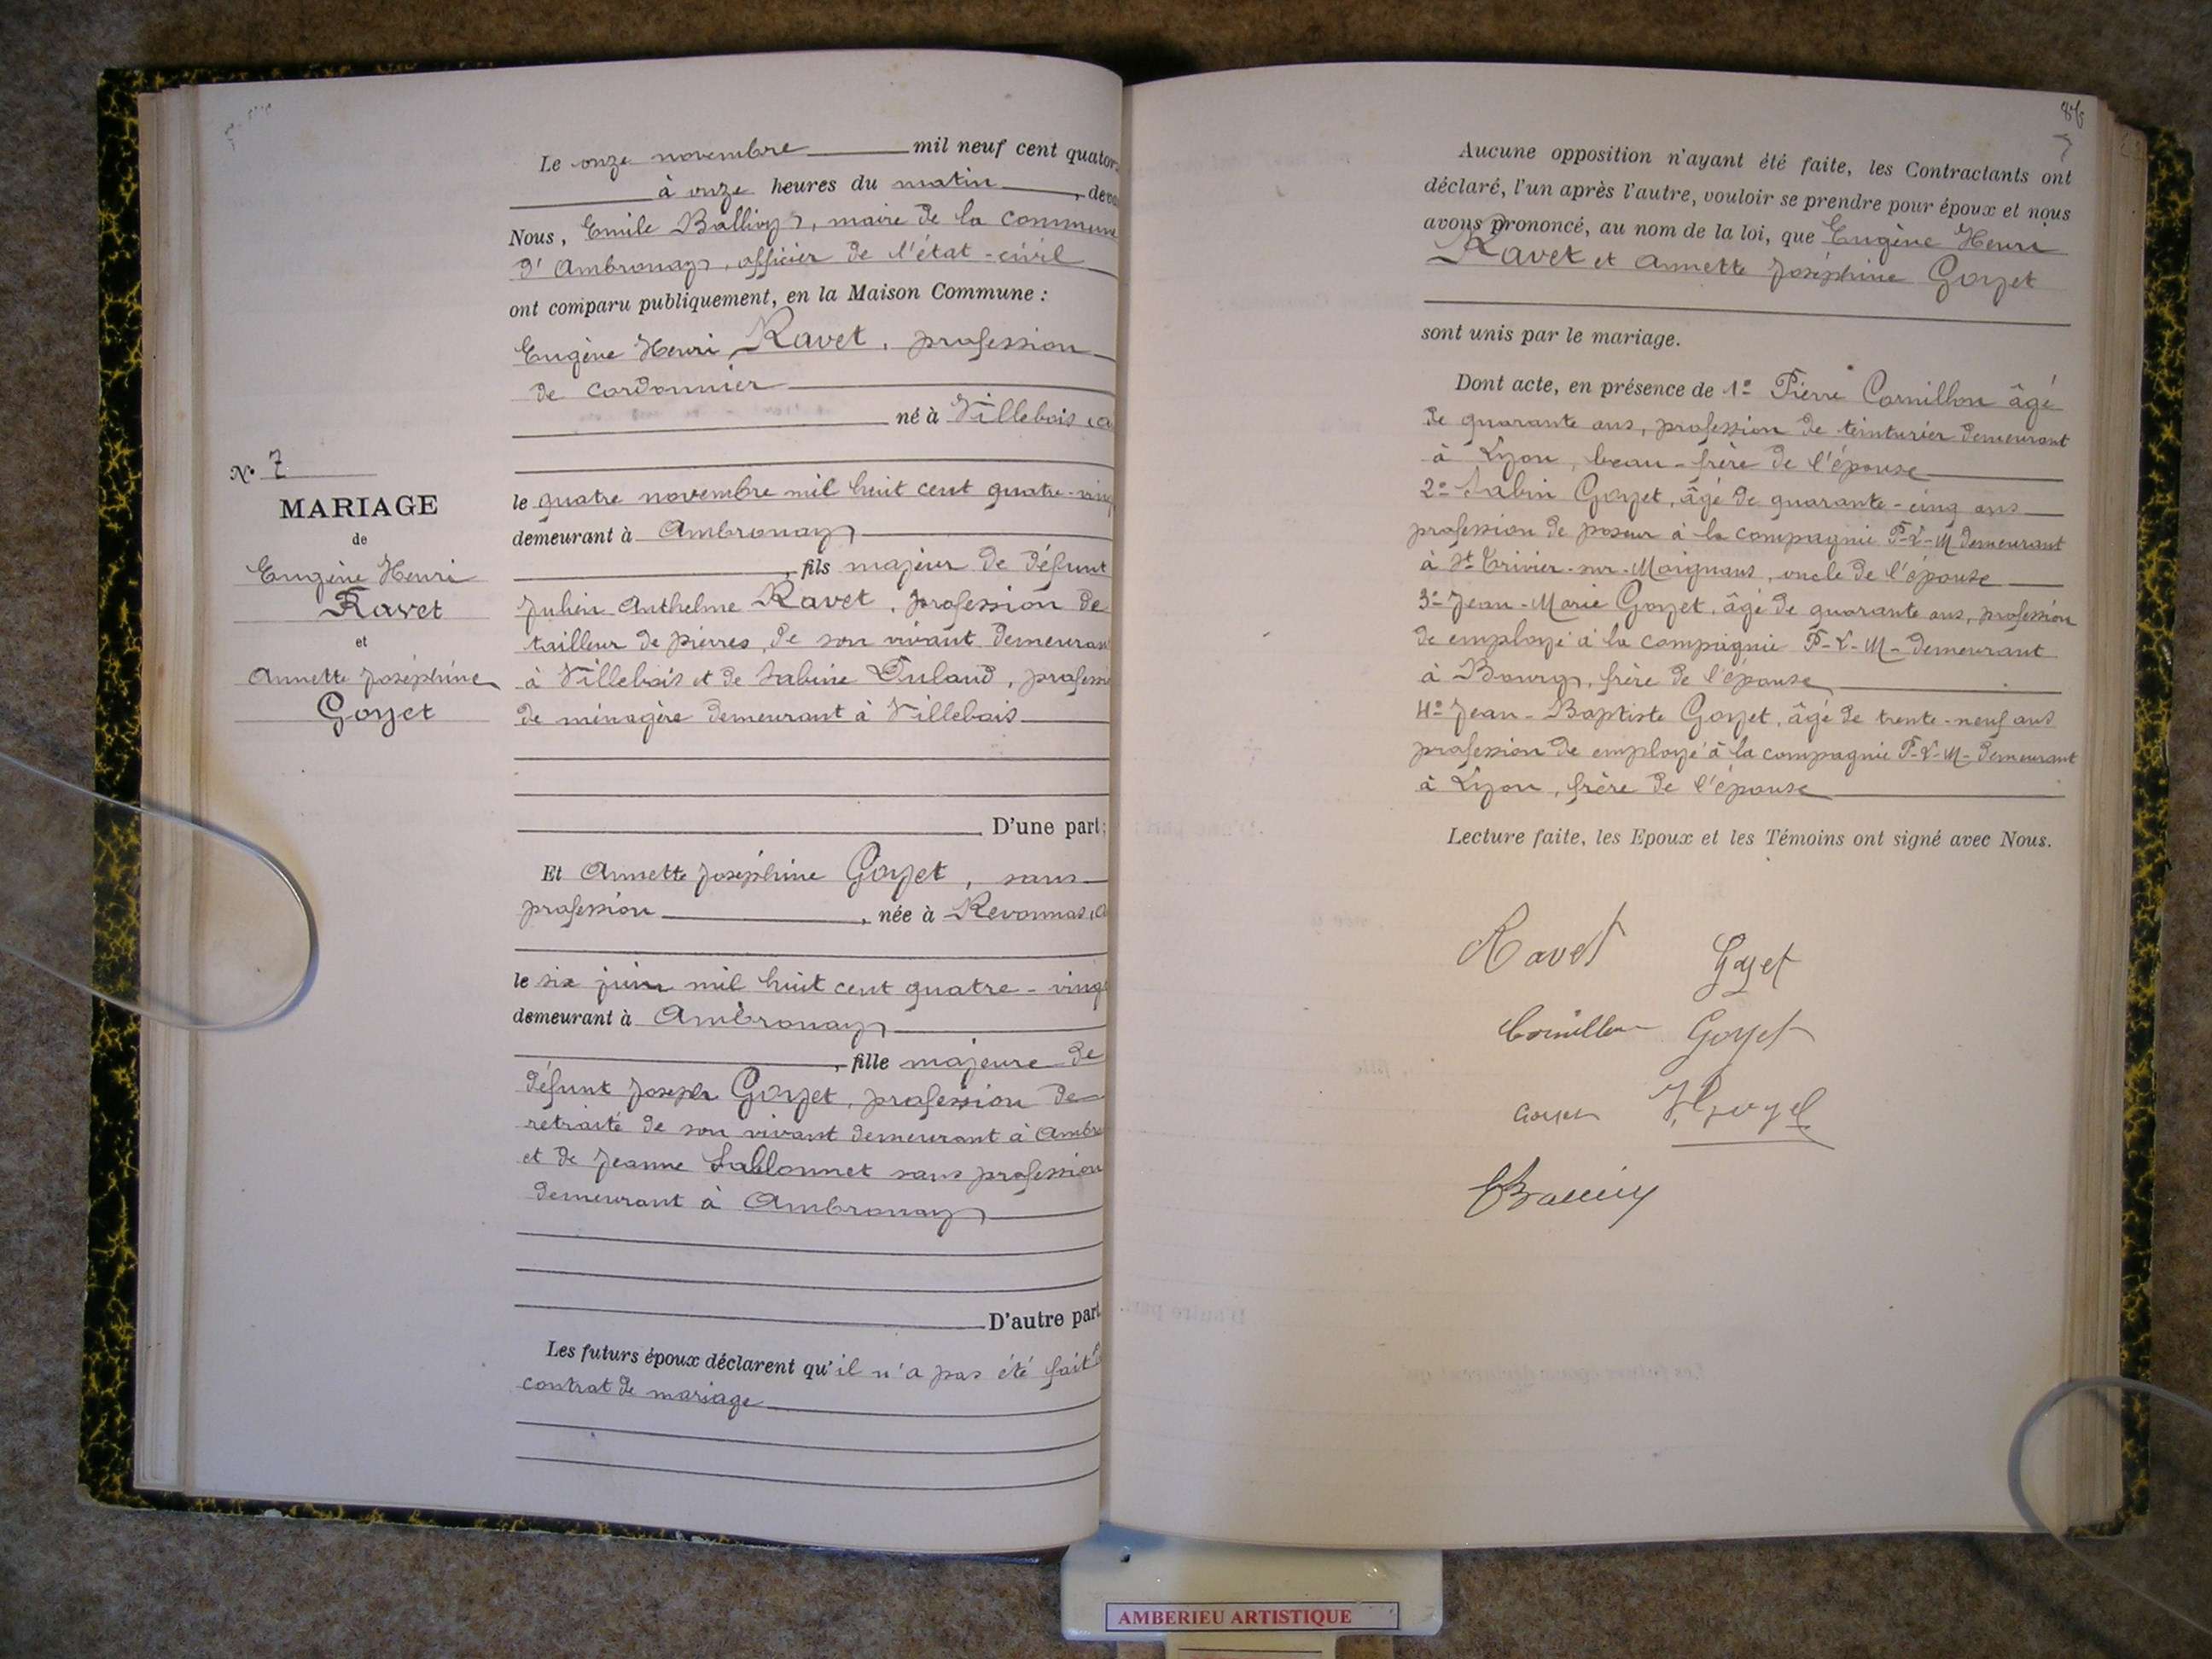 Le onze novembre mil neuf cent quator
à onze heures du matin, deva
Nous, Emile Ballivy, maire de la commune
d'Ambronay, officier de l'état-civil
ont comparu publiquement, en la Maison Commune :
Eugène Henri Ravet, profession
de cordonnier
né à Villebois (A
le quatre novembre mil huit cent quatre-ving
demeurant à Ambronay
, fils majeur de défunt
Julien Anthelme Ravet, profession de
tailleur de pierres, de son vivant demeuran
à Villebois et de Sabine Dulaud, professi
de ménagère demeurant à Villebois
D'une part;
Et Annette Joséphine Goyet, sans
profession, née à Revonnas (A
le six juin mil huit cent quatre-ving
demeurant à Ambronay
, fille majeure de
défunt Joseph Goyet, profession de
retraité de son vivant demeurant à Ambro
et de Jeanne Sablonnet sans profession
demeurant à Ambronay
D'autre part
Les futurs époux déclarent qu'il n'a pas été fait
contrat de mariage
N° 7
MARIAGE
de
Eugène Henri
Ravet
et
Annette Joséphine
Goyet
86
7
Aucune opposition n'ayant été faite, les Contractants ont
déclaré, l'un après l'autre, vouloir se prendre pour époux et nous
avons prononcé, au nom de la loi, que Eugène Henri
Ravet et Annette Joséphine Goyet
sont unis par le mariage.
Dont acte, en présence de 1° Pierre Cornillon âgé
de quarante ans, profession de teinturier demeurant
à Lyon, beau-frère de l'épouse
2° Sabin Goyet, âgé de quarante-cinq ans
profession de poseur à la compagnie P-L-M demeurant
à St Trivier-sur-Moignans, oncle de l'épouse
3° Jean-Marie Goyet, âgé de quarante ans, profession
de employé à la compagnie P-L-M- demeurant
à Bourg, frère de l'épouse
4° Jean-Baptiste Goyet, âgé de trente-neuf ans
profession de employé à la compagnie P-L-M- demeurant
à Lyon, frère de l'épouse
Lecture faite, les Epoux et les Témoins ont signé avec Nous.
Ravet Goyet
Cornillon Goyet
Goyet
AMBERIEU ARTISTIQUE